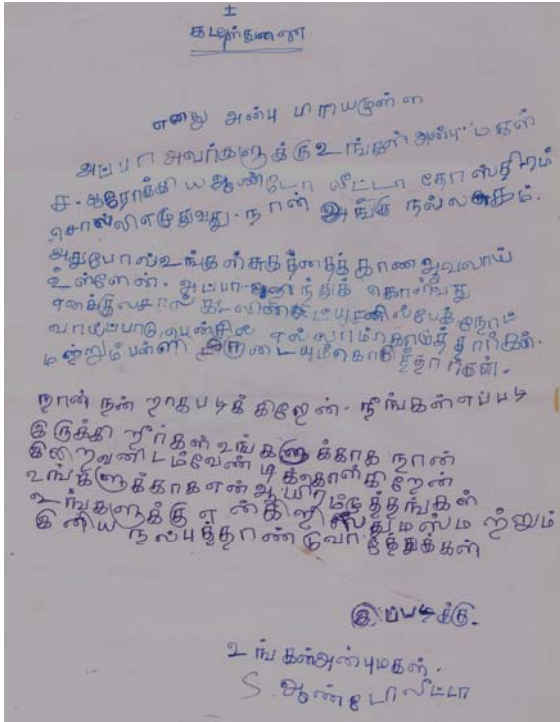 ±
கடவுள் துணை
எனது அன்பு பாசமுள்ள
அப்பா அவர்களுக்கு உங்கள் அன்பு மகள்
ச. ஆரோக்கிய ஆண்டோ லீட்டா தோஸ்திரம்
சொல்லி எழுதுவது. நான் அங்கு நல்ல சுகம்.
அதுபோல் உங்கள் சுகத்தைத் காண ஆவலாய்
உள்ளேன். அப்பா கொள்வது
வாய்ப்பாடு பென்சில் எல்லாம் கொடுத்தார்கள்.
மற்றும் பள்ளி
நான் நன்றாக படிக்கிறேன். நீங்கள் எப்படி
இருக்கிறீர்கள் உங்களுக்காக நான்
இறைவனிடம் வேண்டிக்கொள்கிறேன்
உங்களுக்காக என் ஆயிரம் முத்தங்கள்
உங்களுக்கு என் கிறிஸ்துமஸ் மற்றும்
இனிய நல்புத்தாண்டு வாழ்த்துக்கள்
இப்படிக்கு.
உங்கள் அன்பு மகள்.
S. ஆண்டோ லீட்டா